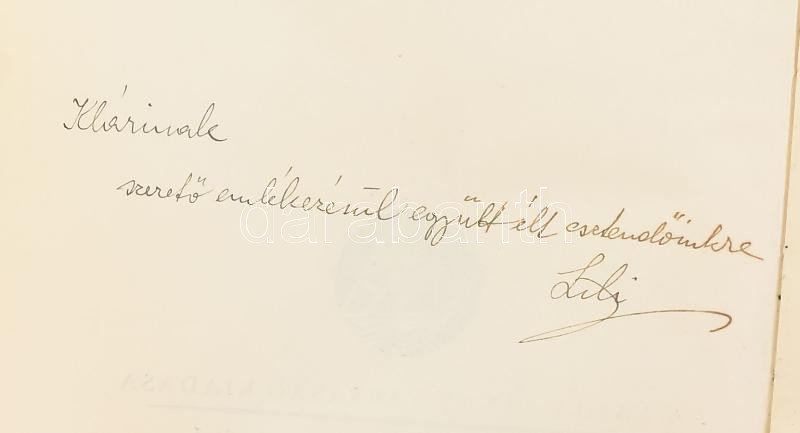 Klárinak
szerető emlékezésül együtt élt esztendőinkre
Lili
darabanth